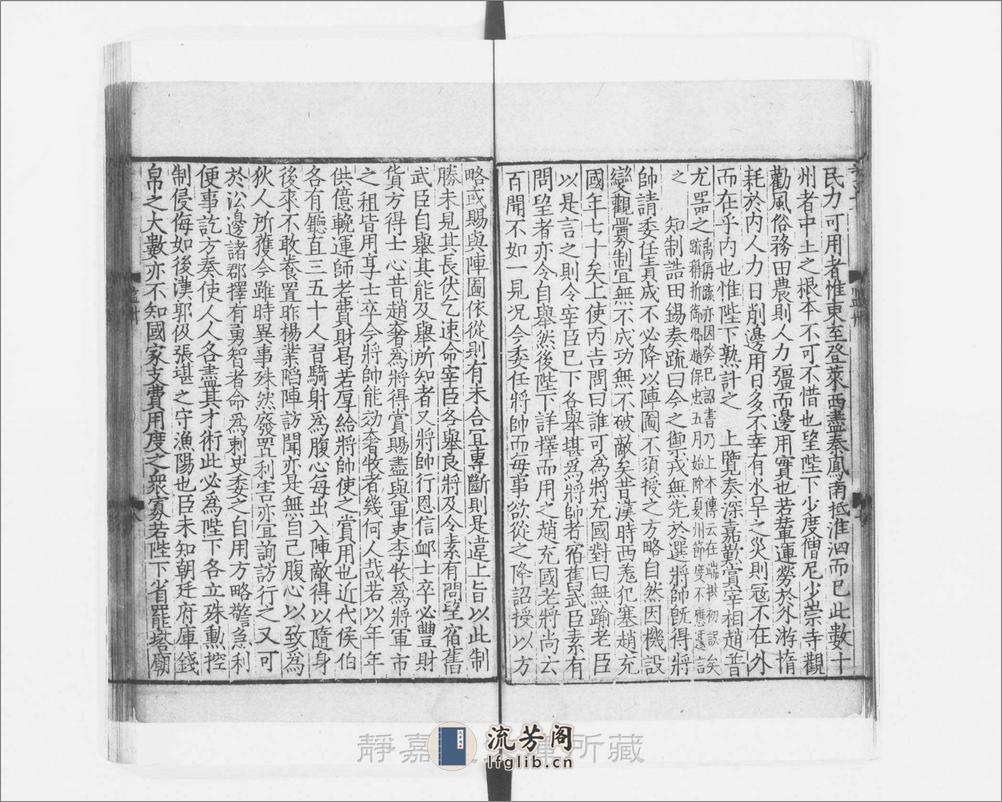 民力可用者惟東至登萊西盡秦鳳南抵淮泗而已此數十
州者中土之根本不可不惜也望陛下少度僧尼少崇寺觀
勸風俗務田農則人力彊而邊用實也若輦運勞於外游惰
耗於內人力日削邊用日多不幸有水旱之災則寇不在外
而在乎內也惟陛下熟計之　上覽奏深嘉歎賞宰相趙普
尤器之禹偁疏亦因癸巳詔書乃上本傳云在端拱初誤矣
疏稱折御卿趙保忠五月始除夏州節度不應遽言
之　知制誥田錫奏疏曰今之禦戎無先於選將帥旣得將
帥請委任責成不必降以陣圖不須授之方略自然因機設
變觀釁制宜無不成功無不破敵矣昔漢時西羌犯塞趙充
國年七十矣上使丙吉問曰誰可為將充國對曰無踰老臣
以是言之則令宰臣已下各舉堪為將帥者宿舊武臣素有
問望者亦令自舉然後陛下詳擇而用之趙充國老將尚云
百聞不如一見況今委任將帥而毎事欲從之降詔授以方
略或賜與陣圖依從則有未合宜專斷則是違上旨以此制
勝未見其長伏乞速命宰臣各舉良將及令素有問望宿舊
武臣自舉其能及舉所知者又將帥行恩信卹士卒必豐財
貨方得士心昔趙奢為將得賞賜盡與軍吏李牧為將軍市
之租皆用享士卒今將帥能効奢牧者幾何人哉若以年年
供億輓運師老費財曷若厚給將帥使之賞用也近代侯伯
各有廳直三五十人習騎射為腹心每出入陣敵得以隨身
後來不敢養置昨楊業陷陣訪聞亦是無自己腹心以致為
狄人所獲今雖時異事殊然發罟利害亦宜詢訪行之又可
於㳂邊諸郡擇有勇智者命為刺史委之自用方略警急利
便事訖方奏使人人各盡其才術此必為陛下各立殊勳控
制侵侮如後漢耿伋張堪之守漁陽也臣未知朝廷府庫錢
帛之大數亦不知國家支費用度之衆寡若陛下省罷塔廟
靜嘉 所藏
流芳阁
lfglib.cn